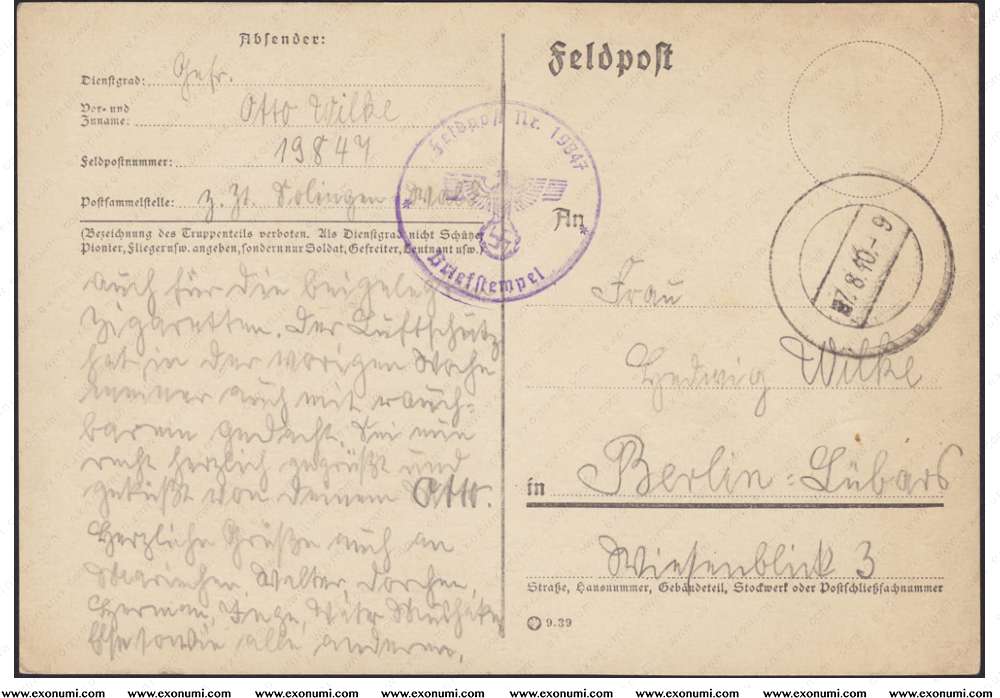 Absender:
Dienstgrad: Gefr.
Vor- und
Zuname: Otto Wilke
Feldpostnummer: 19847
Postsammelstelle: z. Zt. Solingen
(Bezeichnung des Truppenteils verboten. Als Dienstgrad nicht Schütze,
Pionier, Flieger usw. angeben, sondern nur Soldat, Gefreiter, Leutnant usw.)
auch für die beigeleg
Zigaretten. Der Luftschutz
hat in der vorigen Woche
immer auch mit rauch-
barem gedacht. Sei nun
recht herzlich gegrüßt und
geküßt von Deinem Otto.
Herzliche Grüße auch an
Mariechen, Walter, Dorchen,
Herman, Inge, Vater
sowie alle anderen.
Feldpost Nr. 19847
Briefstempel
Feldpost
7.8.40.-9
An
Frau
Hedwig Wilke
in Berlin-Lübars
Wiesenblick 3
Straße, Hausnummer, Gebäudeteil, Stockwerk oder Postschließfachnummer
9.39
www.exonumi.com www.exonumi.com www.exonumi.com www.exonumi.com www.exonumi.com www.exonumi.com www.exonumi.com www.exonumi.com